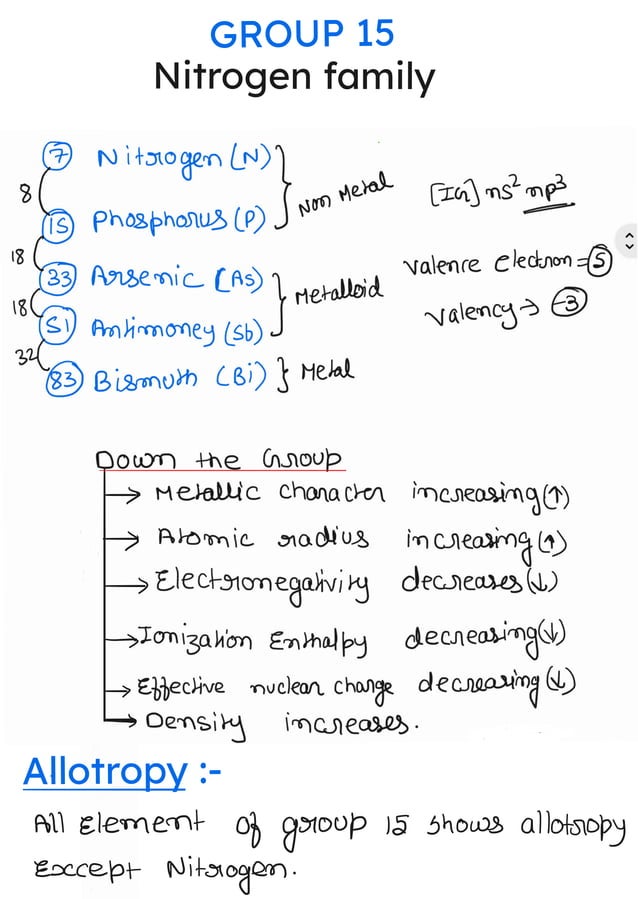 GROUP 15
Nitrogen family
7 Nitrogen (N)
8
Non Metal
[IG] ns² np³
15 Phosphorus (P)
18
33 Arsenic (As)
Metalloid
valence electron = 5
18
51 Antimoney (Sb)
valency → -3
32
83 Bismuth (Bi) } Metal
Down the Group
→ Metallic character increasing (↑)
→ Atomic radius increasing (↑)
→ Electronegativity decreases (↓)
→ Ionization Enthalpy decreasing (↓)
→ Effective nuclear charge decreasing (↓)
→ Density increases.
Allotropy :-
All Element of group 15 shows allotropy
Except Nitrogen.